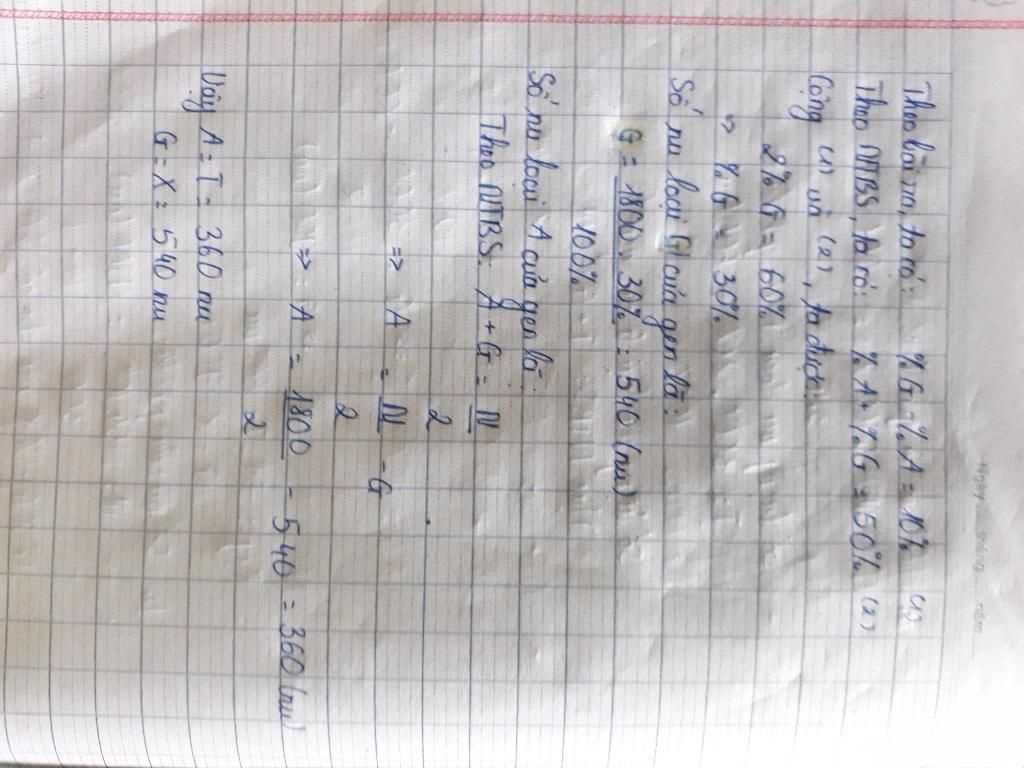 Ngày ..... tháng ..... năm .....
Theo bài ra, ta có: %G - %A = 10% (1)
Theo NTBS, ta có: %A + %G = 50% (2)
Cộng (1) và (2), ta được:
2%G = 60%
=> %G = 30%
Số nu loại G của gen là:
G = 1800. 30% = 540 (nu)
100%
Số nu loại A của gen là:
Theo NTBS: A + G = N
2
=> A = N - G
2
=> A = 1800 - 540 = 360 (nu)
2
Vậy A = T = 360 nu
G = X = 540 nu